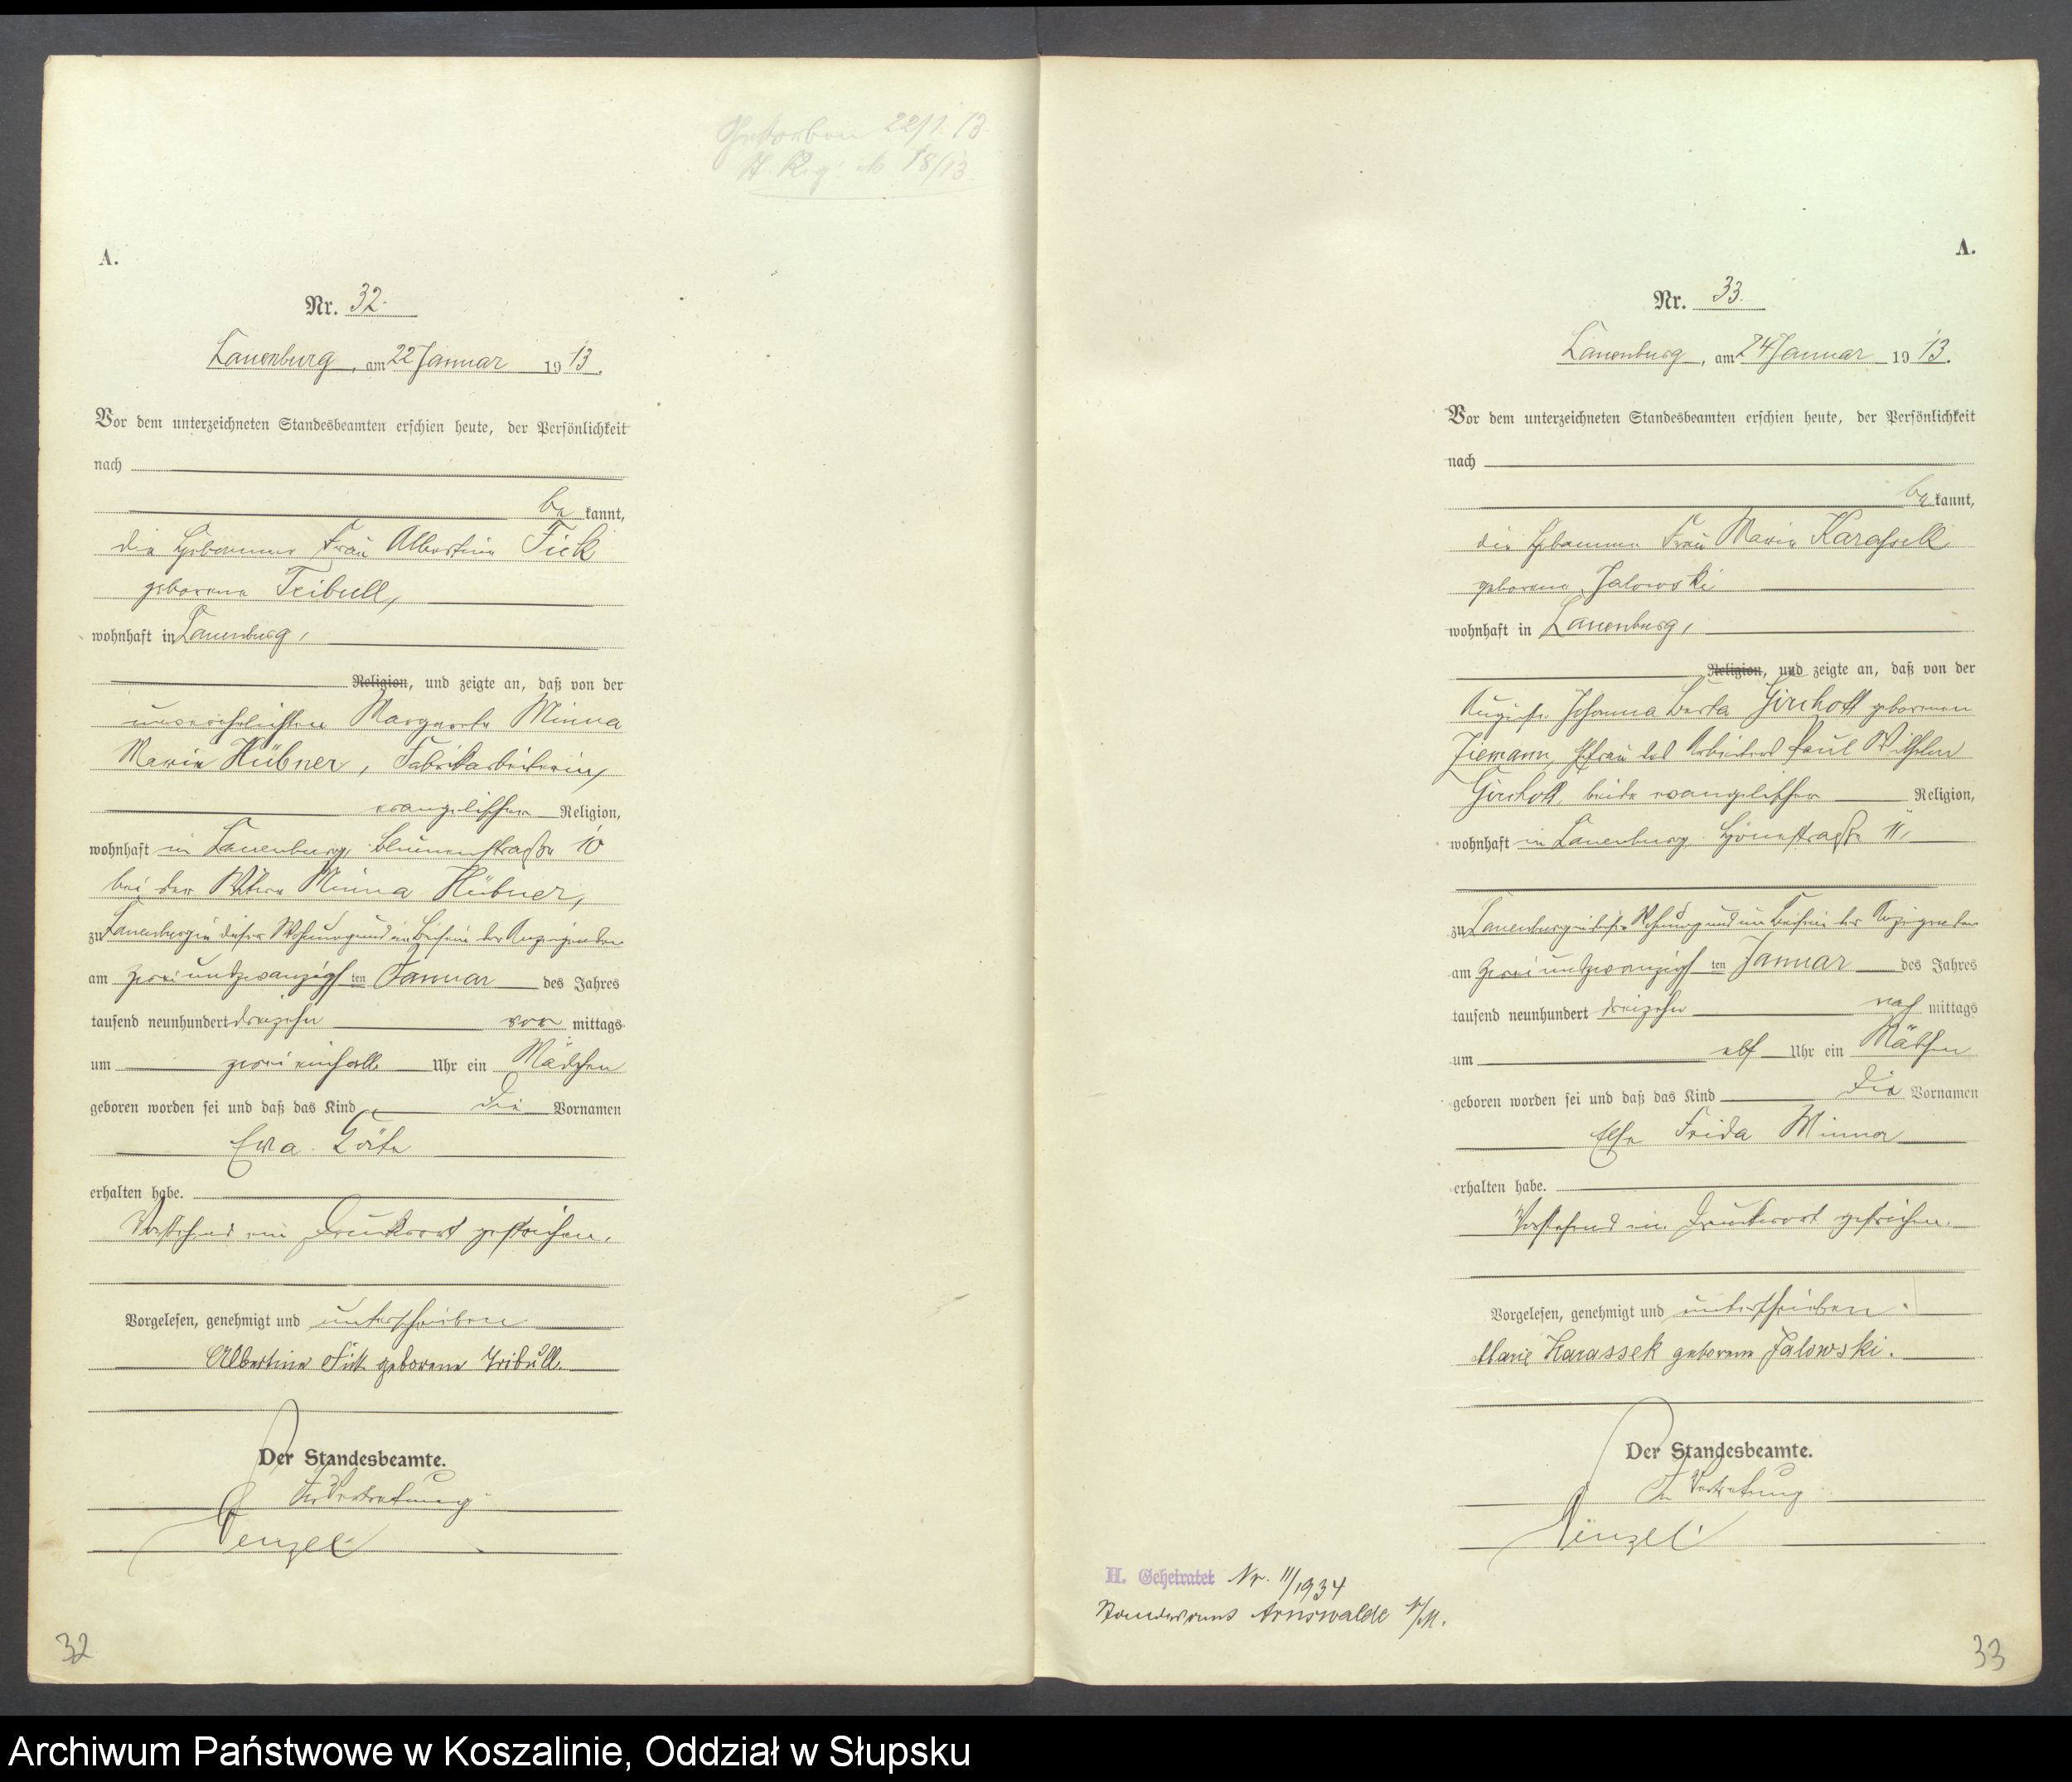 Gestorben 22/1. 13.
St. Reg. No 18/13.
A.
Nr. 32.
Lauenburg, am 22 Januar 1913.
Vor dem unterzeichneten Standesbeamten erschien heute, der Persönlichkeit
nach
be kannt,
die Hebamme Frau Albertine Fick
geborene Tribull,
wohnhaft in Lauenburg,
Religion, und zeigte an, daß von der
unverehelichten Margarete Minna
Marie Hübner, Fabrikarbeiterin,
evangelischer Religion,
wohnhaft in Lauenburg, Blumenstraße 10
bei der Witwe Minna Hübner,
zu Lauenburg in dieser Wohnung und im Beisein der Anzeigenden
am zweiundzwanzigsten Januar des Jahres
tausend neunhundert dreizehn vor mittags
um zwei einhalb Uhr ein Mädchen
geboren worden sei und daß das Kind die Vornamen
Ewa Käte
erhalten habe.
Vorstehend ein Druckwort gestrichen.
Vorgelesen, genehmigt und unterschrieben
Albertine Fick geborene Tribull.
Der Standesbeamte.
In Vertretung
Penzel
32
A.
Nr. 33.
Lauenburg, am 24 Januar 1913.
Vor dem unterzeichneten Standesbeamten erschien heute, der Persönlichkeit
nach
be kannt,
die Hebamme Frau Marie Karassek
geborene Jalowski
wohnhaft in Lauenburg,
Religion, und zeigte an, daß von der
Auguste Johanna Berta Girchott geborenen
Ziemann, Ehefrau des Arbeiters Paul Wilhelm
Girchott, beide evangelischer Religion,
wohnhaft in Lauenburg 11,
zu Lauenburg in dieser Wohnung und im Beisein der Anzeigenden
am zweiundzwanzigsten Januar des Jahres
tausend neunhundert dreizehn nach mittags
um elf Uhr ein Mädchen
geboren worden sei und daß das Kind die Vornamen
Else Frida Minna
erhalten habe.
Vorstehend ein Druckwort gestrichen.
Vorgelesen, genehmigt und unterschrieben.
Marie Karassek geborene Jalowski.
Der Standesbeamte.
In Vertretung
Penzel
H. Geheiratet Nr. 11/1934
Standesamt Arnswalde N/M.
33
Archiwum Państwowe w Koszalinie, Oddział w Słupsku